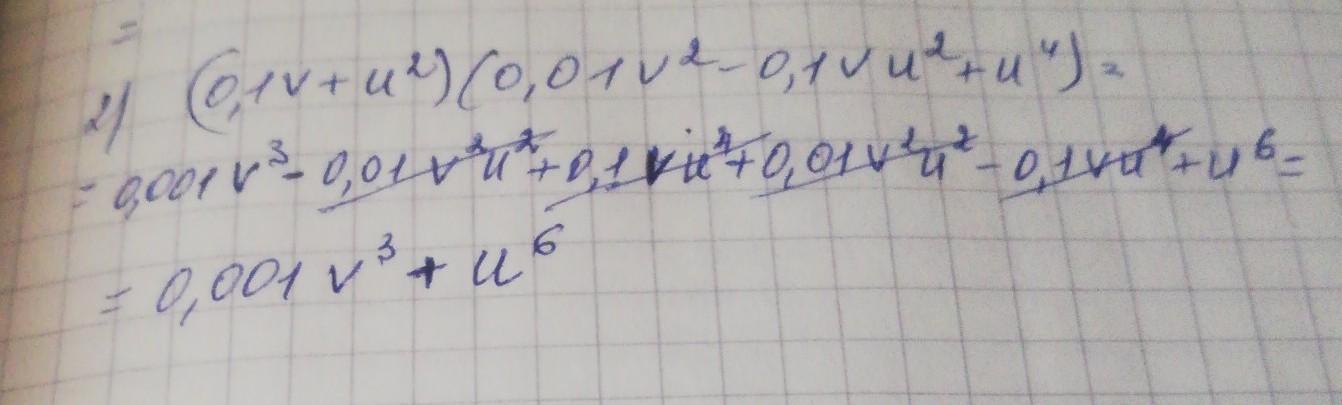 =
2) (0,1v+u²)(0,01v²-0,1vu²+u⁴)=
=0,001v³-0,01v²u²+0,1vu⁴+0,01v²u²-0,1vu⁴+u⁶=
=0,001v³+u⁶